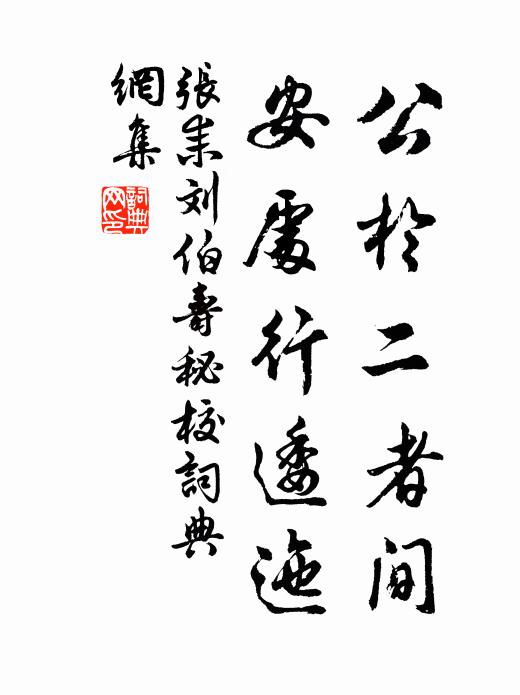 公於二者間
安處行逶迤
張耒刘伯壽秘校詞典
網集
詞典
网印